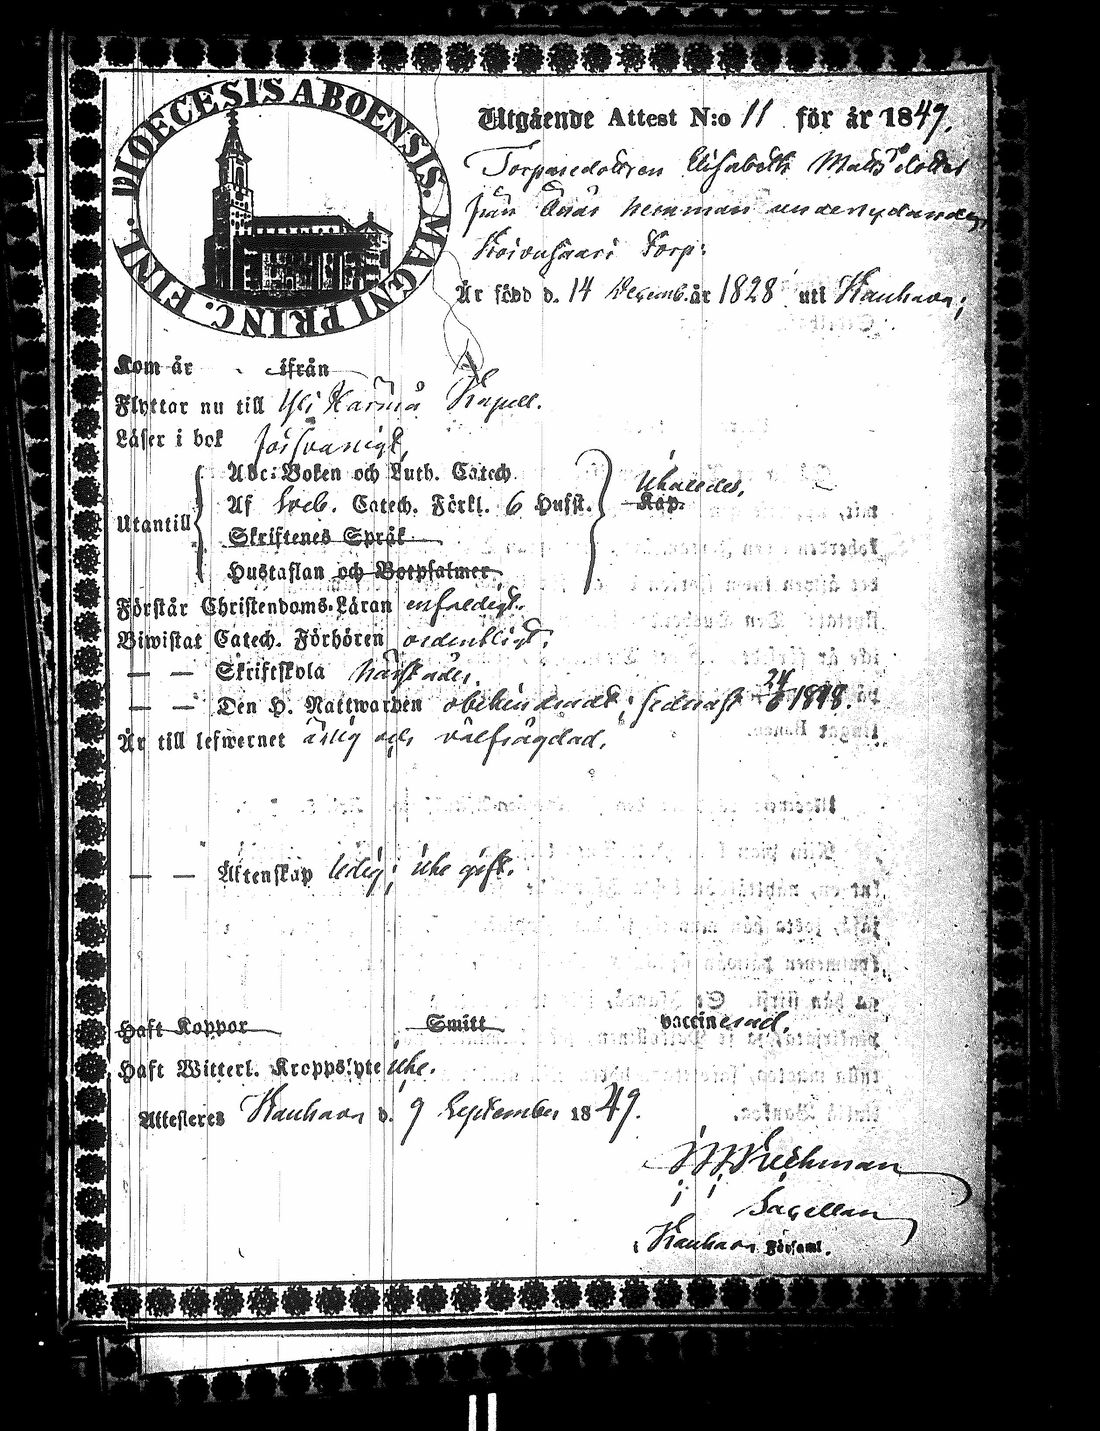 DIOECESIS ABOENSIS. MAGNI PRINC. FINL.
Utgående Attest N:o 11 för år 1849.
Torparedottren Elisabeth Matsdotter
från hemman underlydande
Koivusaari Torp:
Är född d. 14 Decemb. år 1828 uti Kauhava;
Kom år ifrån
Flyttar nu till Yli Härmä Kapell.
Läser i bok försvarligt,
Abc-Boken och Luth. Catech.
Utantill
Af Sveb. Catech. Förkl. 6 Hufst.
Skriftenes Språk
Hustaflan och Botpsalmer
Kap.
Förstår Christendoms-Läran enfaldigt.
Biwistat Catech. Förhören ordentligt;
— — Skriftskola
— — Den H. Nattwarden obehindradt, sednast 24/6 1849.
Är till lefwernet ärlig och välfrägdad.
— — Äktenskap ledig, icke gift.
Haft Koppor Smitt vaccinerad.
Haft Witterl. Kroppslyte icke.
Attesteras Kauhava d. 9 September 1849.
Sacellan
i Kauhava Församl.